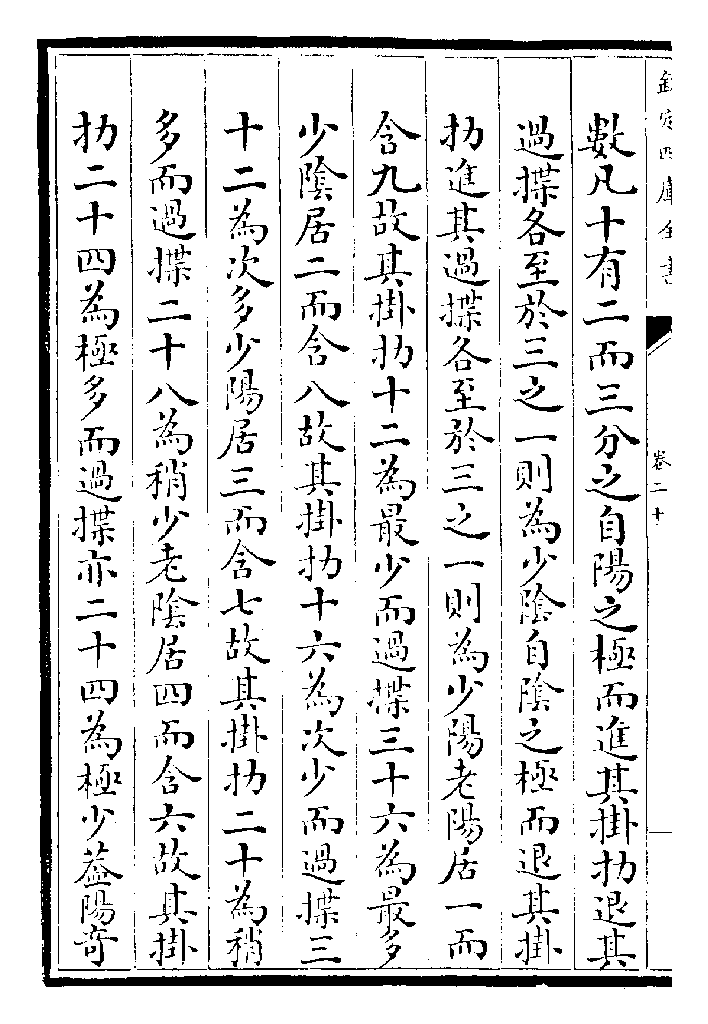 欽定四庫全書
卷二十
數凡十有二而三分之自陽之極而進其掛扐退其
過揲各至於三之一則為少陰自陰之極而退其掛
扐進其過揲各至於三之一則為少陽老陽居一而
含九故其掛扐十二為最少而過揲三十六為最多
少陰居二而含八故其掛扐十六為次少而過揲三
十二為次多少陽居三而含七故其掛扐二十為稍
多而過揲二十八為稍少老陰居四而含六故其掛
扐二十四為極多而過揲亦二十四為極少葢陽奇